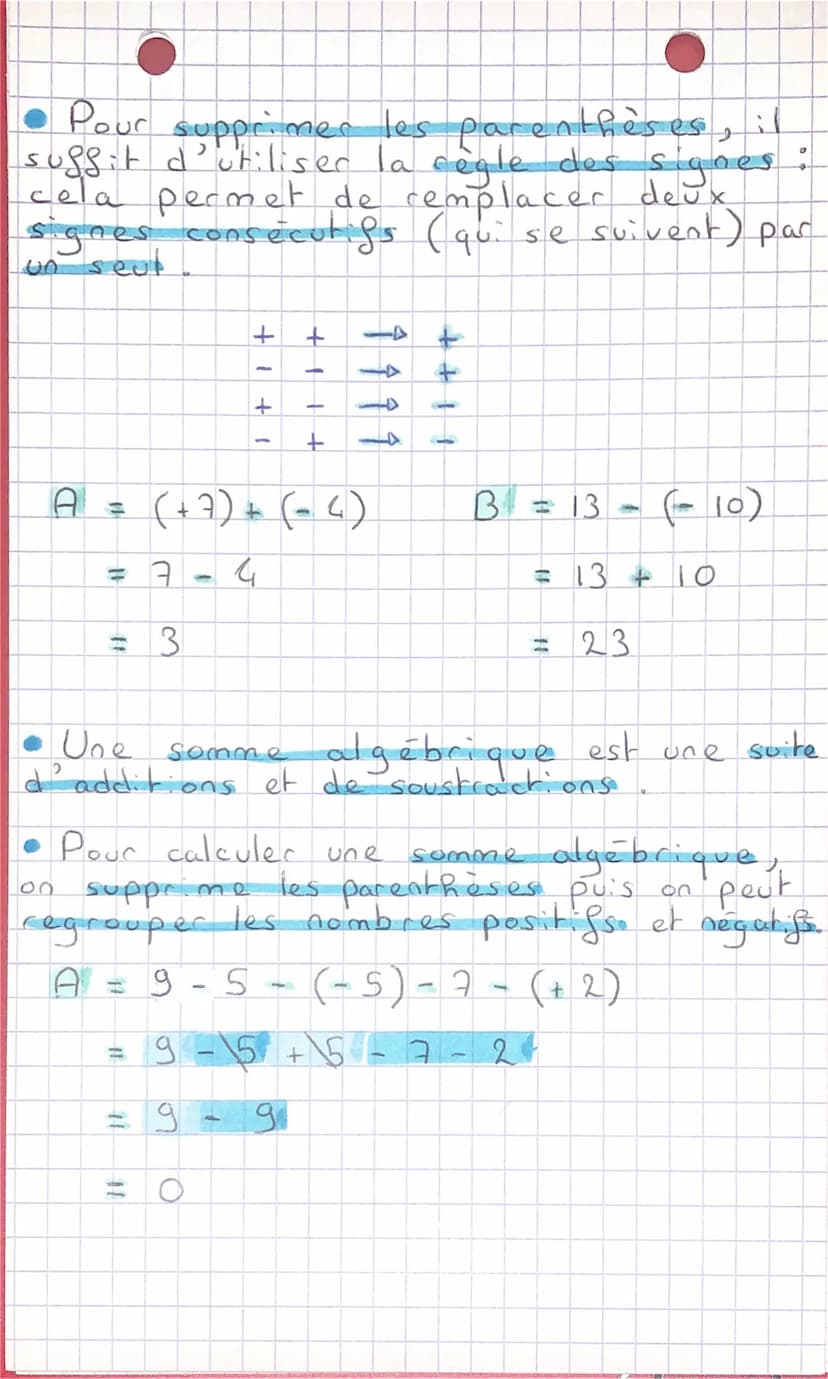 • Pour supprimer les parenthèses, il
suffit d'utiliser la règle des signes :
cela permet de remplacer deux
signes consécutifs (qui se suivent) par
un seul.
+ + → +
- - → +
+ - → -
- + → -
A = (+7) + (-4) B = 13 - (-10)
= 7 - 4 = 13 + 10
= 3 = 23
• Une somme algébrique est une suite
d'additions et de soustractions.
• Pour calculer une somme algébrique,
on supprime les parenthèses puis on peut
regrouper les nombres positifs et négatifs.
A = 9 - 5 - (-5) - 7 - (+2)
= 9 - 5 + 5 - 7 - 2
= 9 - 9
= 0